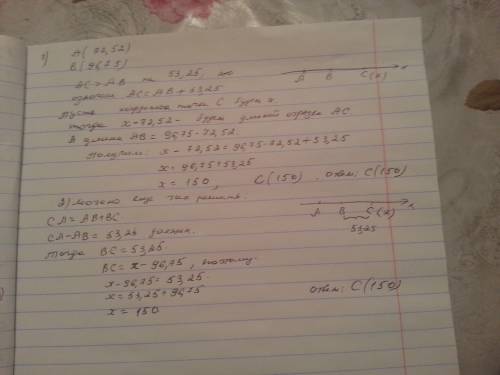 1) A(72,52)
B(96,75)
AC > AB на 53,25, это
означает AC = AB + 53,25
A B C(x) x
Пусть координата точки C будет x,
тогда x - 72,52 - будет длиной отрезка AC.
а длина AB = 96,75 - 72,52.
Получим: x - 72,52 = 96,75 - 72,52 + 53,25
x = 96,75 + 53,25
x = 150, C(150). Ответ: C(150)
2) можно еще так решить:
A B C(x) x
53,25
CA = AB + BC
CA - AB = 53,25
тогда BC = 53,25.
BC = x - 96,75, поэтому
x - 96,75 = 53,25.
x = 53,25 + 96,75
x = 150
Ответ: C(150)